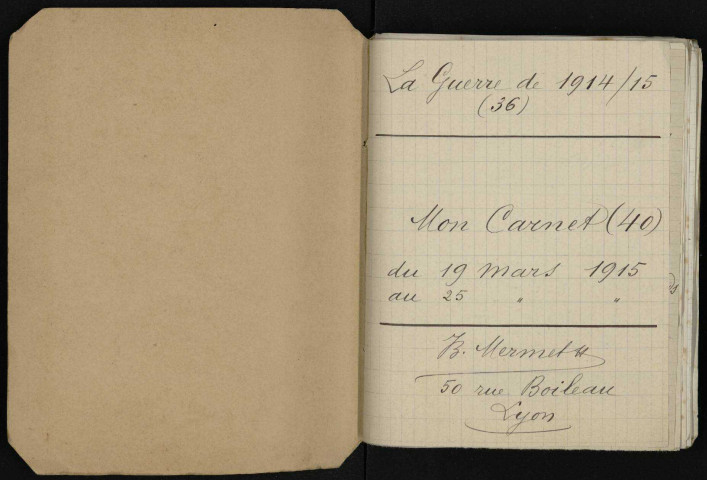 La Guerre de 1914/15
(36)
Mon Carnet (40)
du 19 mars 1915
au 25 " "
B. Mermet
50 rue Boileau
Lyon